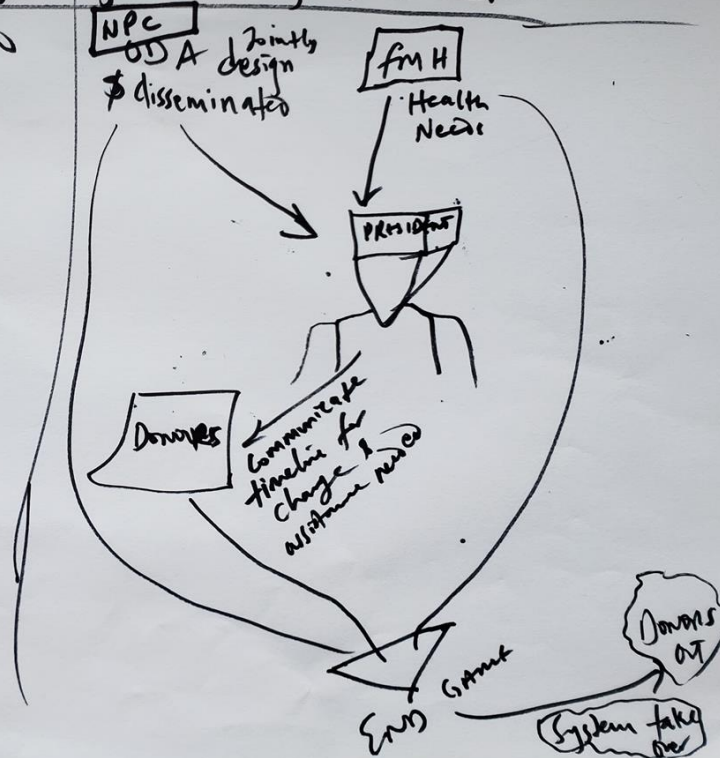 NPC
ODA
Jointly
design
$ disseminated
fmH
Health
Needs
PRESIDENT
DONORS
Communicate
timeline for
change &
assistance needed
END GAME
DONORS
OUT
System take
over